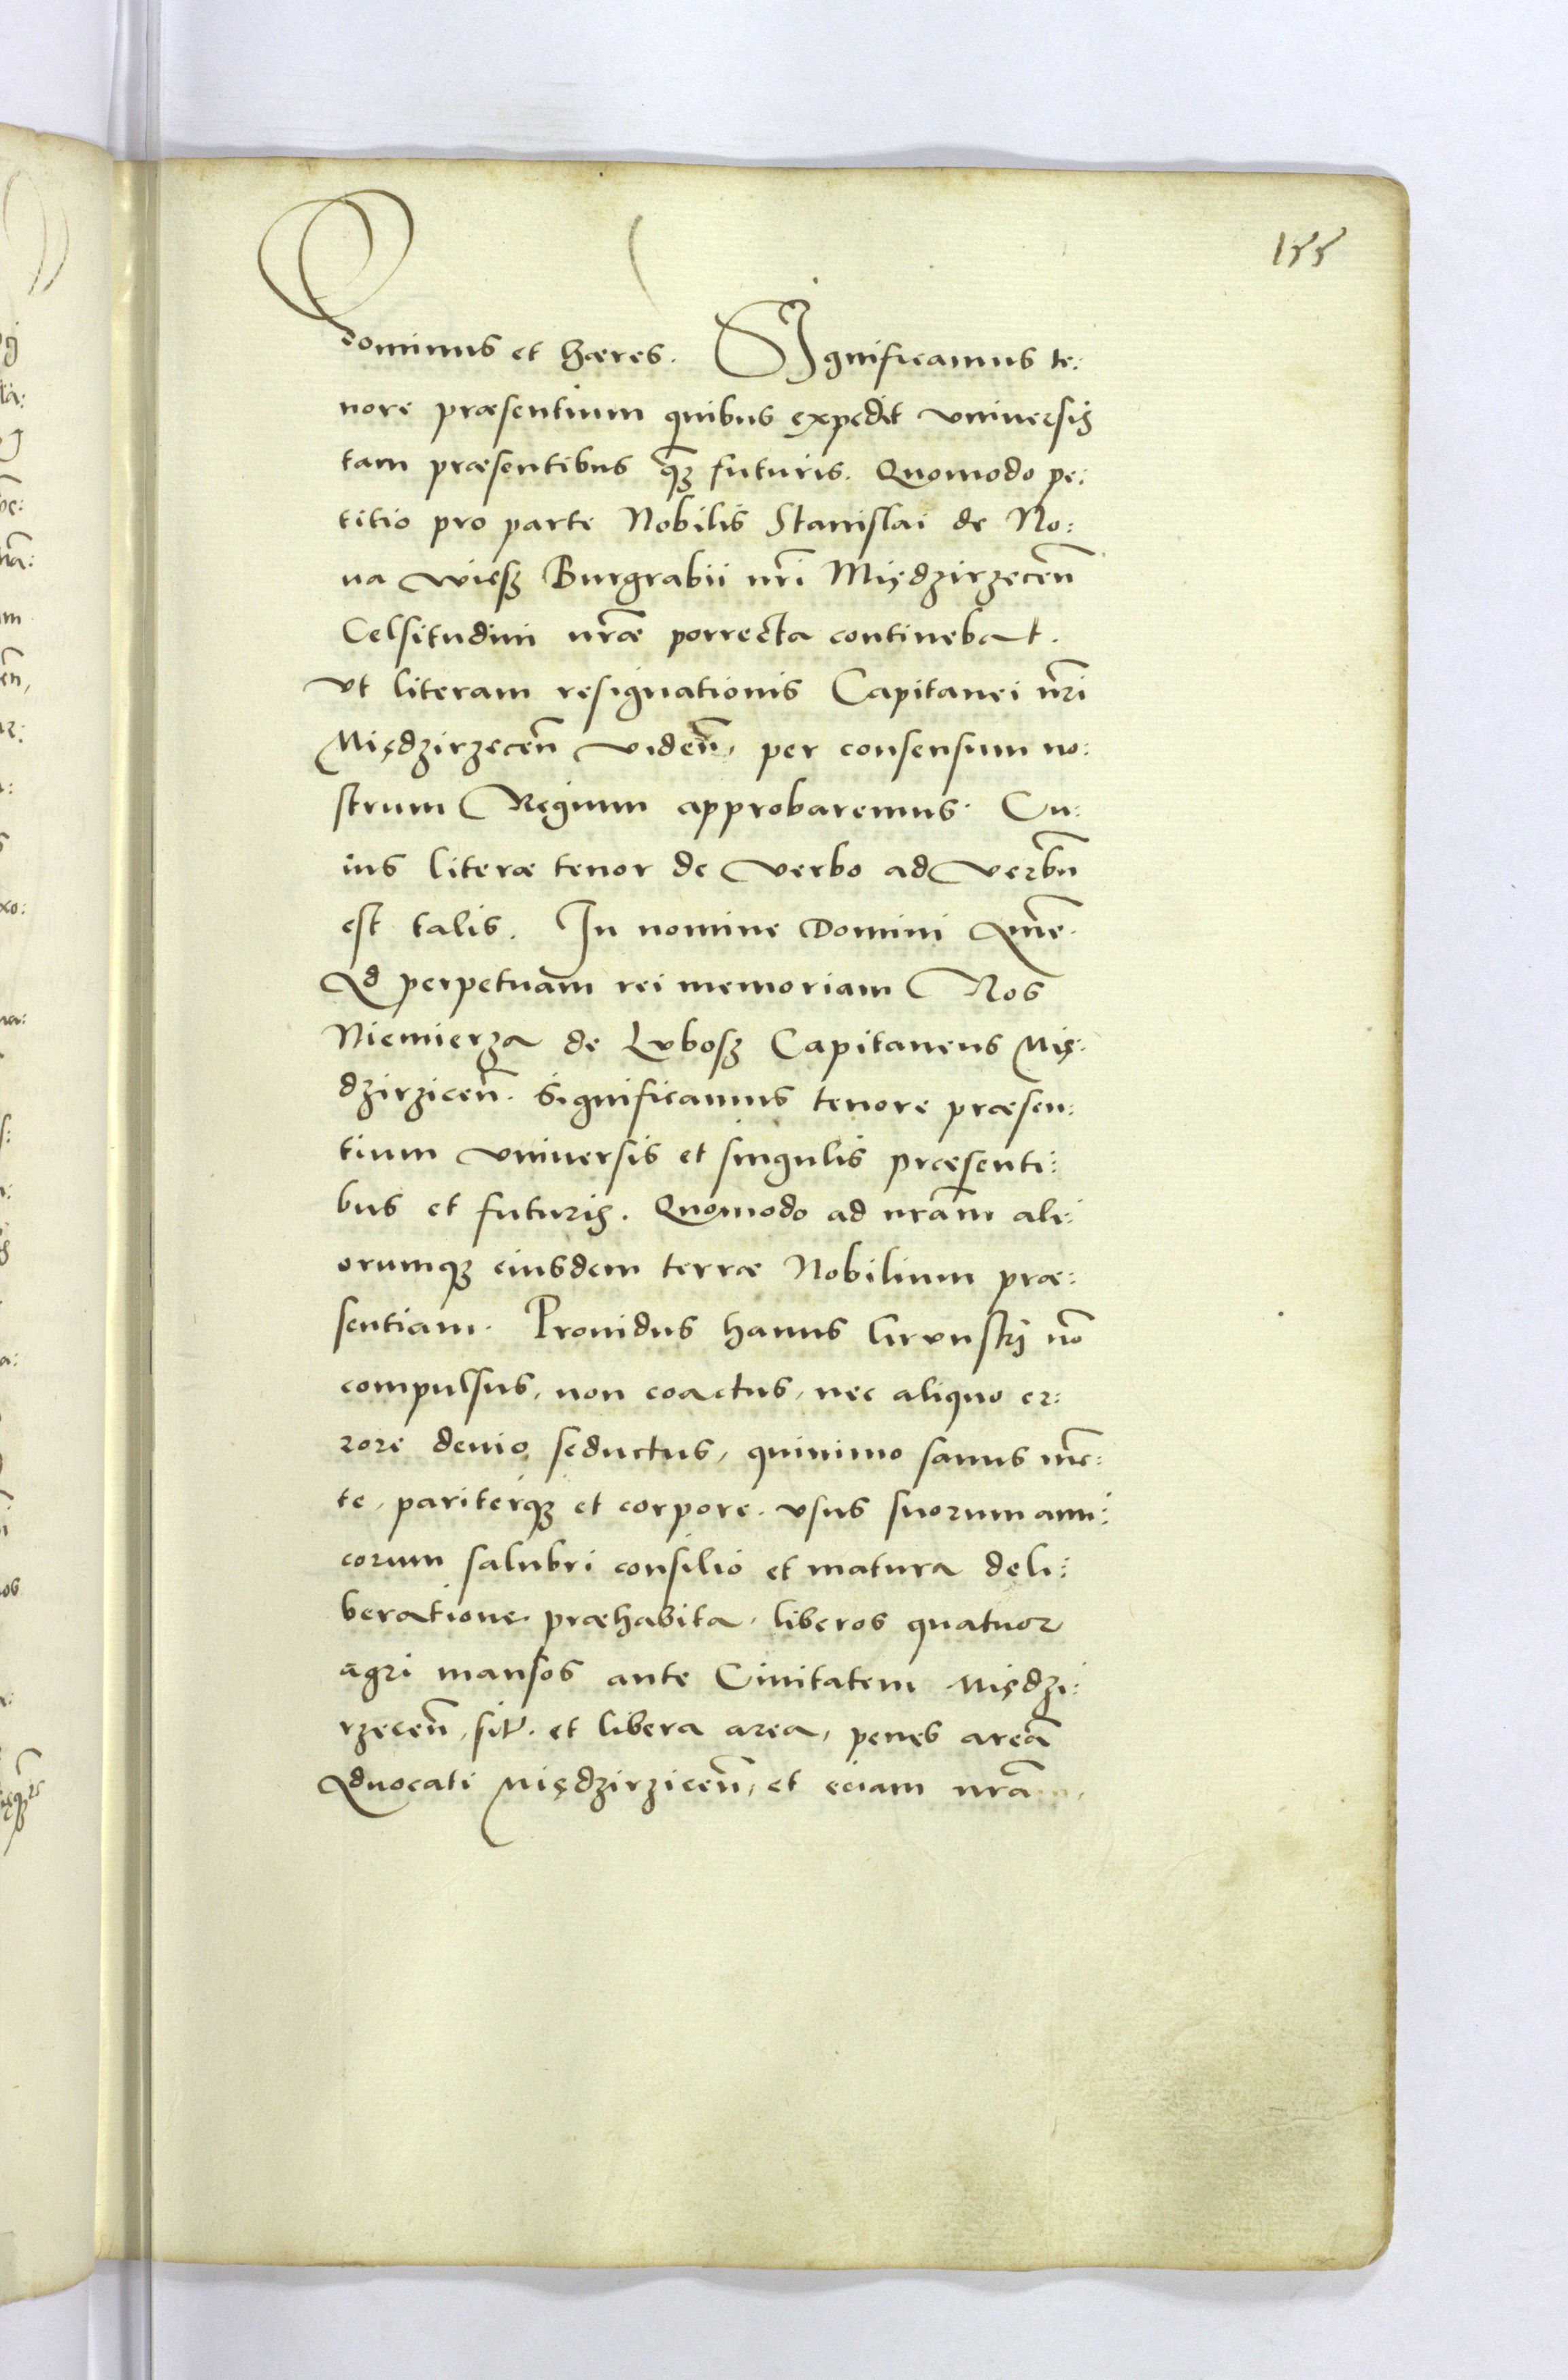 155
Dominus et hæres. SIgnificamus te:
nore præsentium quibus expedit vniuersis
tam præsentibus q̃ȝ futuris. Quomodo pe:
titio pro parte Nobilis Stanislai de No:
ua wiesz Burgrabii nr̃i Międzirzecen̄
Celsitudini nr̃æ porrecta continebat.
Vt literam resignationis Capitanei nr̃i
Międzirzecen̄ viden̄, per consensum no:
strum Regium approbaremus. Cu:
ius literæ tenor de verbo ad verbū
est talis. In nomine Domini Amē.
Ad perpetuam rei memoriam Nos
Niemierza de Lubosz Capitaneus Mię:
dzirzicen̄. Significamus tenore præsen:
tium vniuersis et singulis præsenti:
bus et futuris. Quomodo ad nr̃am ali:
orumqȝ eiusdem terræ Nobilium præ:
sentiam. Prouidus hanus Grunskj nō
compulsus, non coactus, nec aliquo er:
rore deuio seductus, quinimo sanus mē:
te, pariterqȝ et corpore. vsus suorum ami:
corum salubri consilio et matura deli:
beratione præhabita, liberos quatuor
agri mansos ante Ciuitatem Międzi:
rzecen̄, sit̃. et libera area, penes areā
Aduocati Międzirzicen̄, et eciam nr̃am,